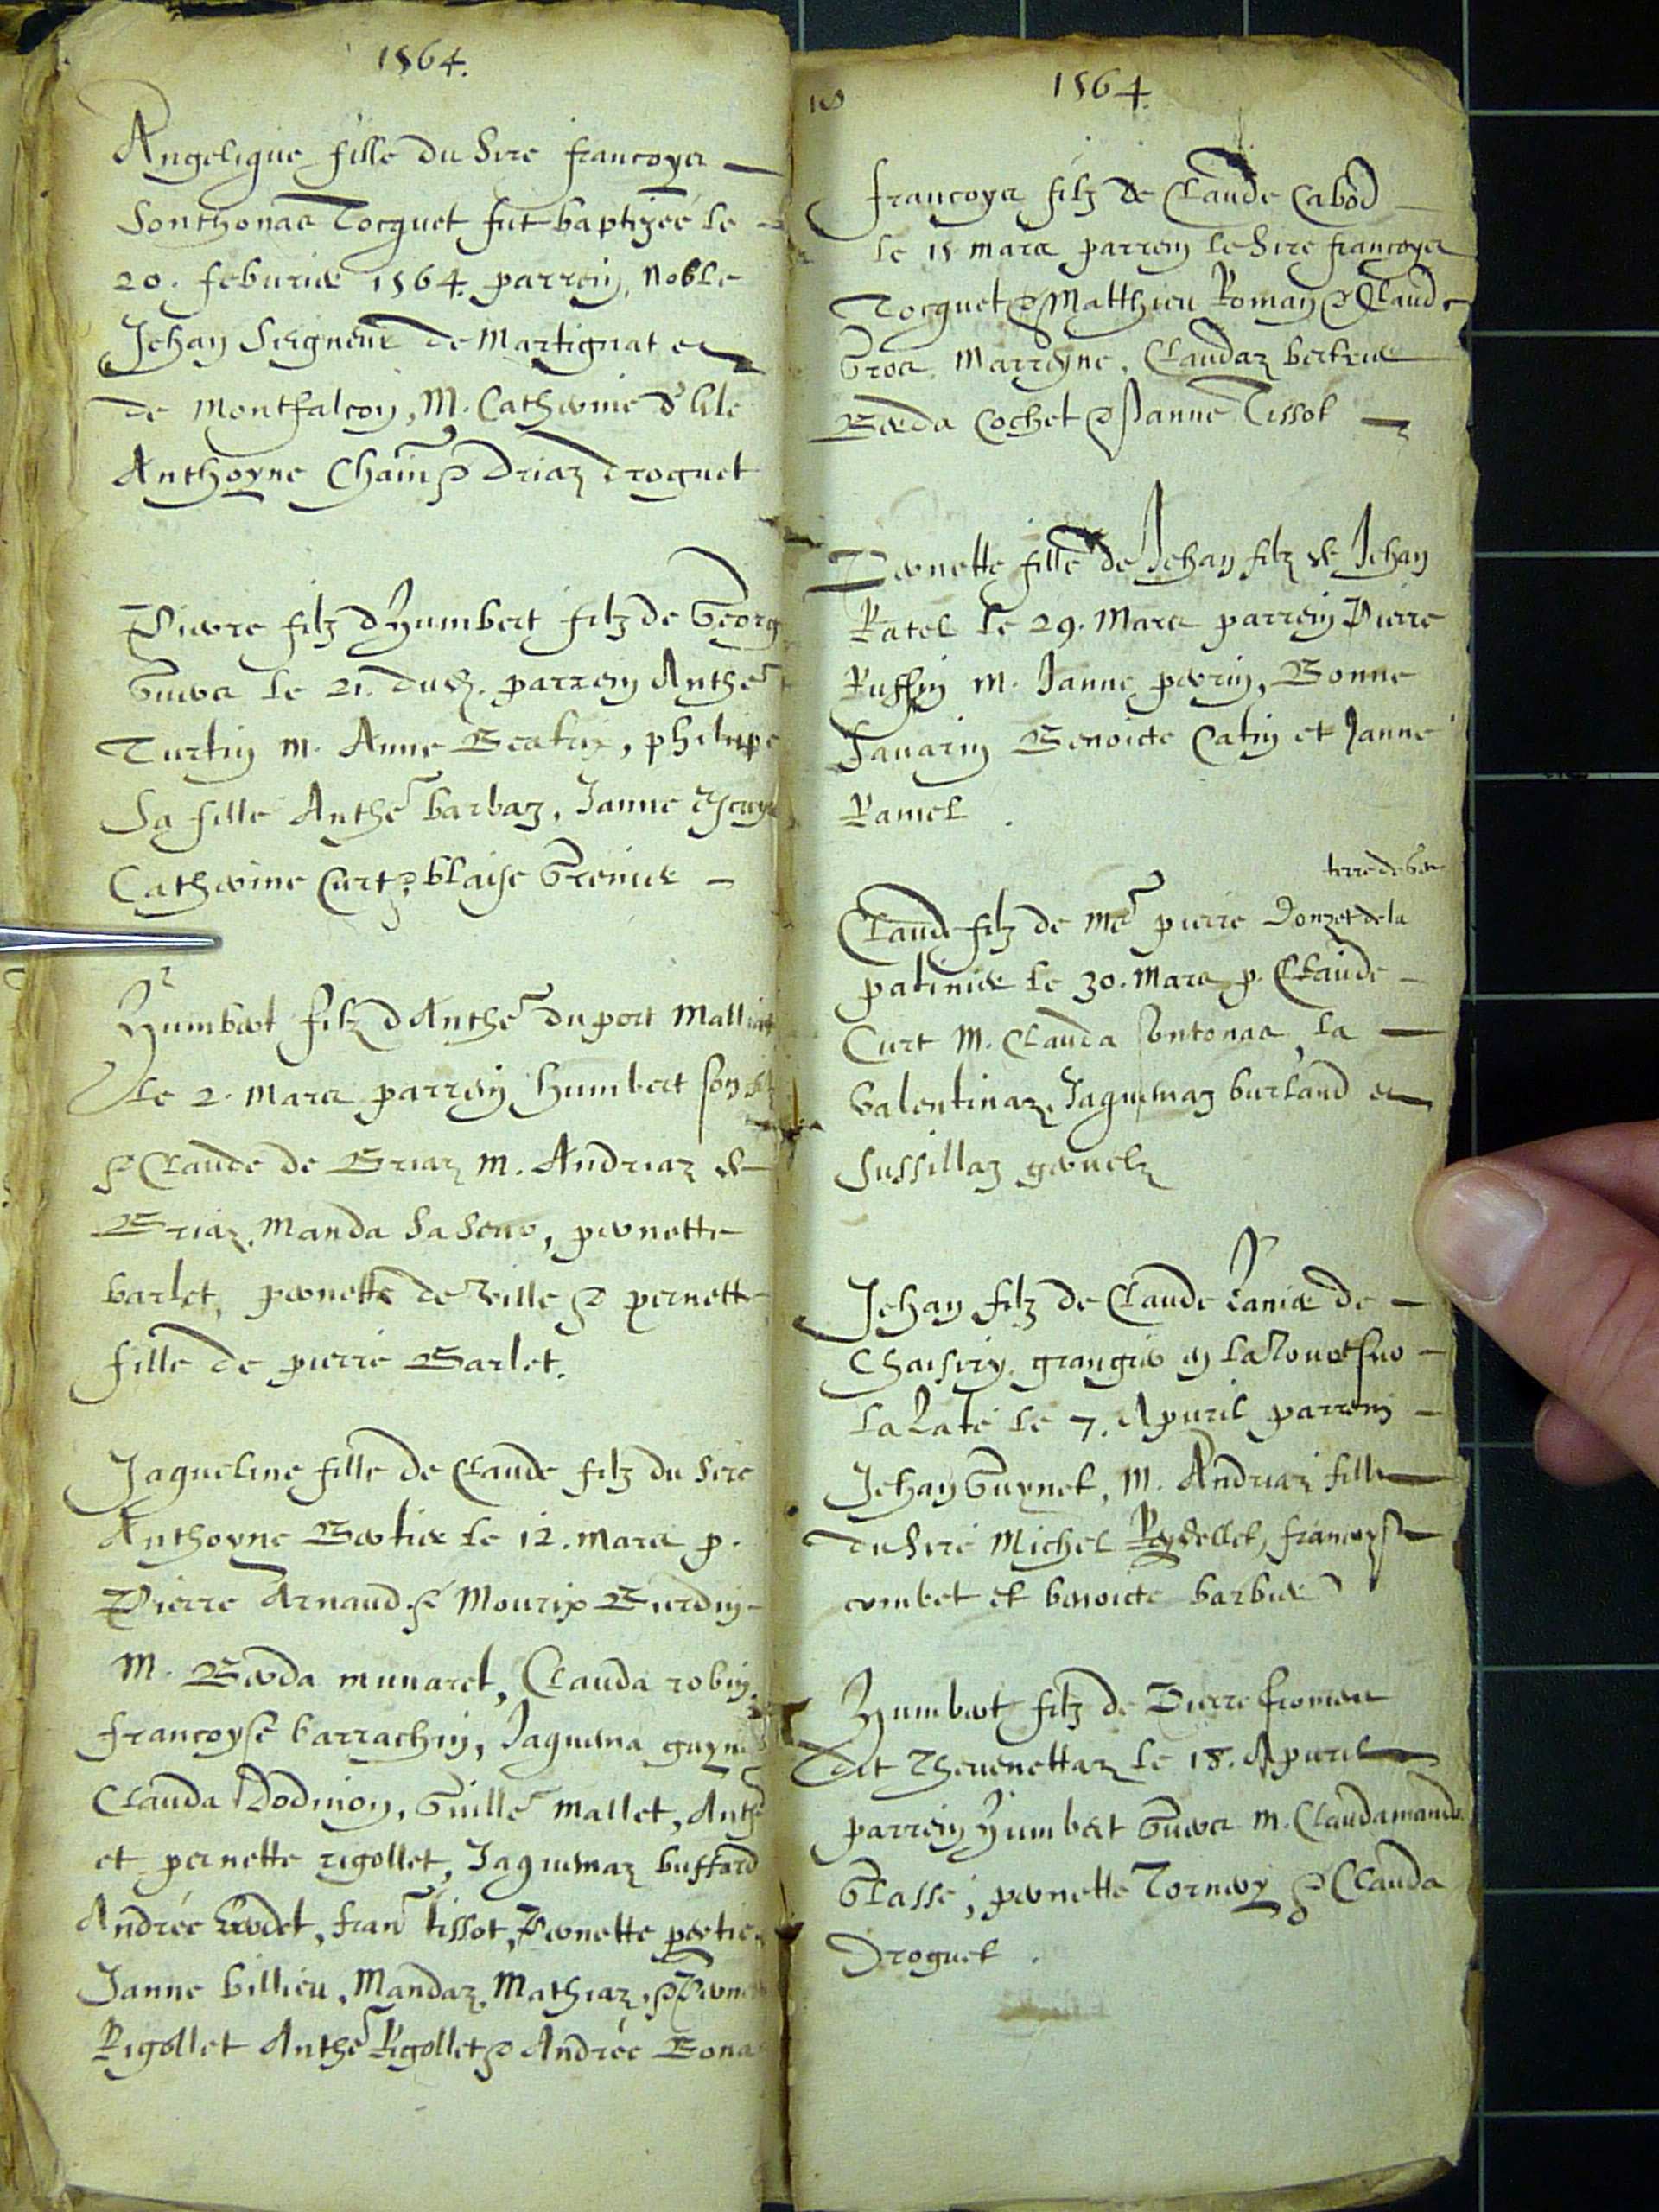 1564.
Angelique fille du Sire francoys
Sonthonas Tocquet fut baptizée le
20. feburier 1564. parrein, Noble
Jehan Seigneur de Martignat et
de Montfalcon, M. Catherine
Anthoyne & Driaz Droguet
Pierre filz d'Humbert filz de Georg
le 21. dud. parrein Anthe
Turtin M. Anne Beatrix, philippe
Sa fille Anthe barbaz, Janne
Catherine Curt & blaise Grenier
Humbert filz d'Anthe du port
Le 2. Mars parrein humbert son
& Claude de Briaz M. Andriaz de
Briaz, Manda Sa Seur, pernette
barlet, pernette de & pernette
fille de pierre Barlet.
Jaqueline fille de Claude filz du Sire
Anthoyne Bertier le 12. mars p.
Pierre Arnaud & Mourix Burdin
M. Berda munaret, Clauda robin,
francoyse barrachin, Jaquema guyn
Clauda Dodinon, Guille mallet, Anthe
et pernette rigollet, Jaquemaz buffard
Andrée, fran tissot, Pernette pertie
Janne billieu, Mandaz Mathiaz, & Perne
Rigollet Anthe Rigollet & Andrée Bona
1564.
francoys filz de Claude Cabod
le 15 mars parrein le Sire francoys
Tocquet & Matthieu Roman & Claude
Gros. Marreyne, Claudaz bertrier
Berda Cochet & Janne Tissot
Pernette fille de Jehan filz de Jehan
Ratel le 29. Mars parrein Pierre
Ruffin M. Janne perrin, Bonne
Sauarin Benoicte Catin et Janne
Ramel
terre de
Claude filz de me pierre Donzet de la
patinier le 30. Mars p. Claude
Curt M. Clauda Sontonas, la
Valentinaz, Jaquemaz burland et
Sussillaz
Jehan filz de Claude de
Chaisiry, grangier en
le 7. Apuril parrein
Jehan Guynet, M. Andriaz fille
du Sire Michel Reydellet, francoyse
combet et benoicte barbier
Humbert filz de Pierre froment
dit Theuenettaz le 18. Apuril
parrein Humbert M. Clauda
pernette & Clauda
Droguet.